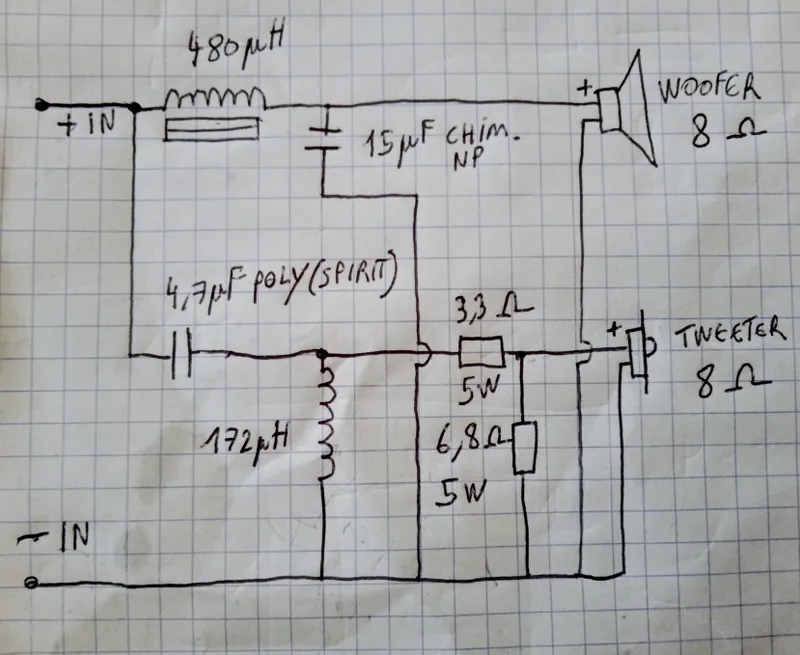 480µH
+ iN
15µF CHIM.
NP
WOOFER
8 Ω
4,7µF POLY (SPIRIT)
3,3 Ω
5W
+
+
TWEETER
8 Ω
172µH
6,8Ω
5W
- IN